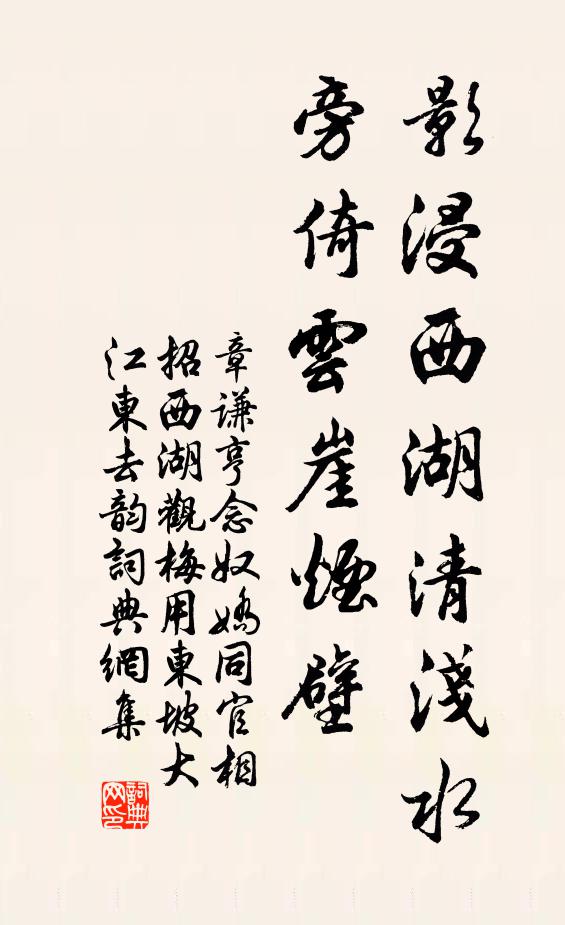 影浸西湖清淺水
旁倚雲崖煙壁
章謙亨念奴嬌同官相
招西湖觀梅用東坡大
江東去韵詞典網集
詞典
网印